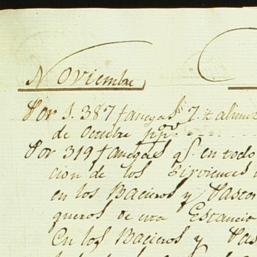 Noviembre
Por 1.387 fanegas 7
de Octubre pp.
Por 319 fanegas qe. en todo
cion de los Sirvientes
en los Baqueros y Pastor
queros de esta Estancia
En los Baqueros y Pas